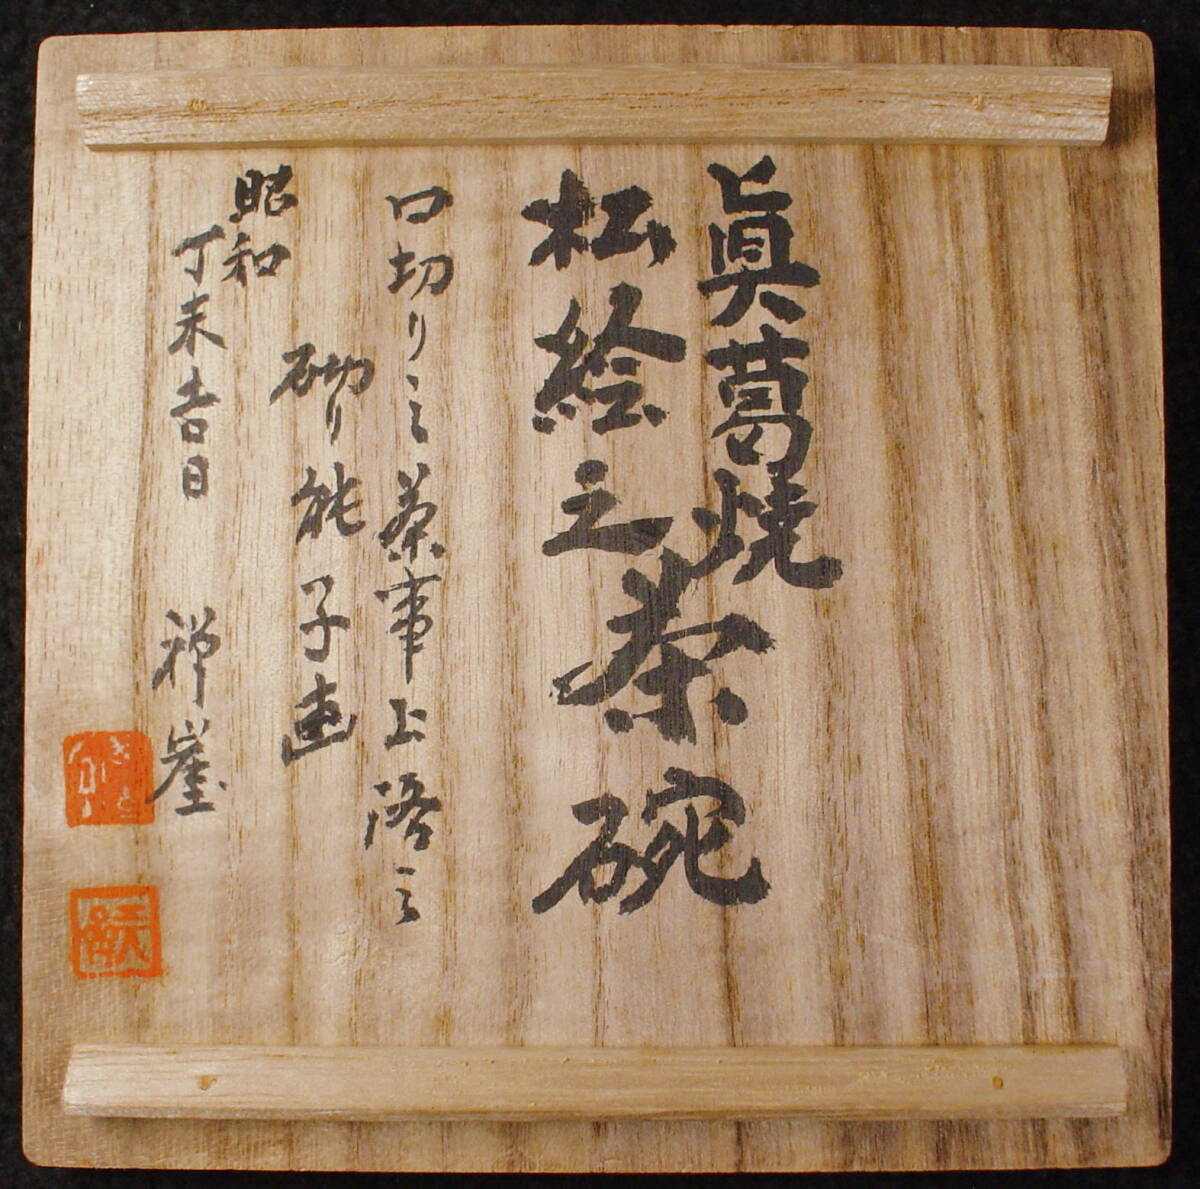 眞葛焼
松絵之茶碗
口切り之茶事上落之
砌り能子造
昭和
丁未吉日 禅崖